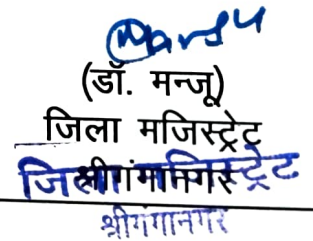 Manju
(डॉ. मन्जू)
जिला मजिस्ट्रेट
श्रीगंगानगर
जिला मजिस्ट्रेट
श्रीगंगानगर